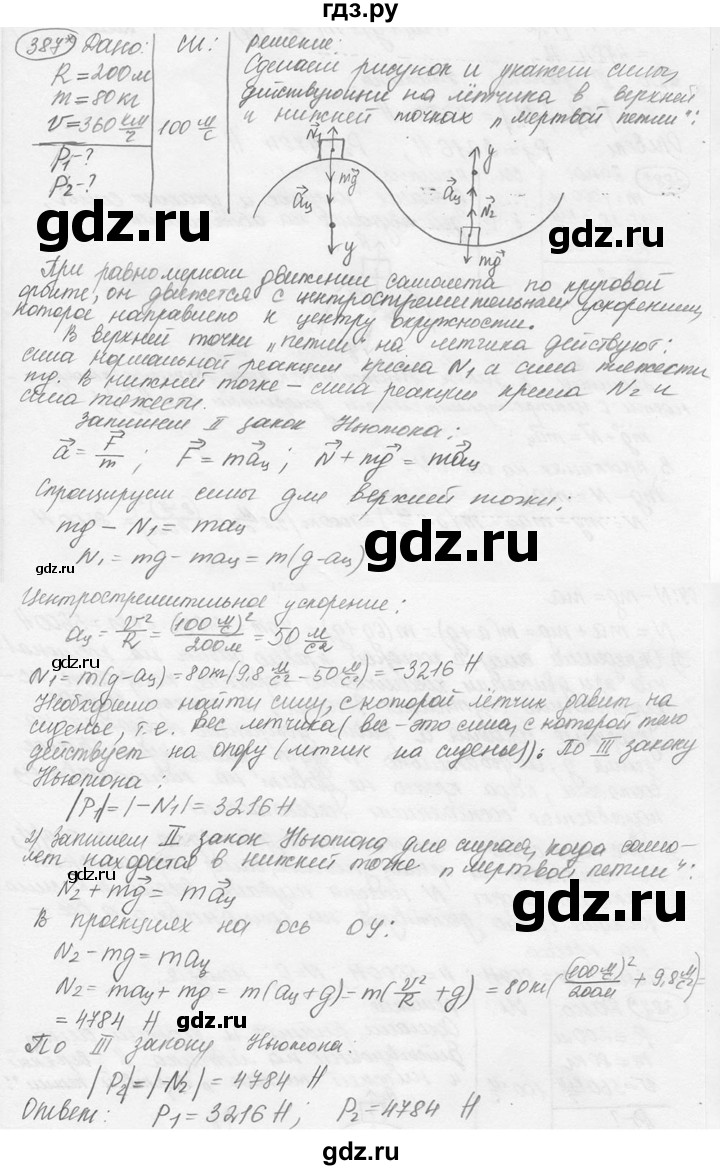 гдз.ру
387* Дано: СИ: Решение:
R = 200 м
m = 80 кг
v = 360 км/ч 100 м/с
P₁-?
P₂-?
Сделаем рисунок и укажем силы,
действующие на лётчика в верхней
и нижней точках „мертвой петли":
N₁ mg aц y
y aц N₂ mg
При равномерном движении самолета по круговой
орбите, он движется с центростремительным ускорением,
которое направлено к центру окружности.
В верхней точки „петли" на летчика действуют:
сила нормальной реакции кресла N₁ и сила тяжести
mg. В нижней точке – сила реакции кресла N₂ и
сила тяжести.
Запишем II закон Ньютона:
a = F/m ; F = maц ; N + mg = maц
Спроцируем силы для верхней точки:
mg – N₁ = maц
N₁ = mg – maц = m(g – aц)
Центростремительное ускорение:
aц = v²/R = (100 м/с)²/200м = 50 м/с²
N₁ = m(g – aц) = 80 (9,8 м/с² – 50 м/с²) = –3216 Н
Необходимо найти силу, с которой лётчик давит на
сиденье, т.е. вес летчика (вес – это сила, с которой тело
действует на опору (летчик на сиденье)). По III закону
Ньютона:
|P₁| = |–N₁| = 3216 Н
2) Запишем II закон Ньютона для случая, когда само-
лет находится в нижней точке „мертвой петли":
N₂ + mg = maц
В проекциях на ось ОУ:
N₂ – mg = maц
N₂ = maц + mg = m(aц + g) = m(v²/R + g) = 80кг((100 м/с)²/200м + 9,8 м/с²) =
= 4784 Н
По III закону Ньютона:
|P₂| = |–N₂| = 4784 Н
Ответ: P₁ = 3216 Н; P₂ = 4784 Н
gdz.ru
gdz.ru
gdz.ru
gdz.ru
gdz.ru
gdz.ru
gdz.ru
gdz.ru
gdz.ru
gdz.ru